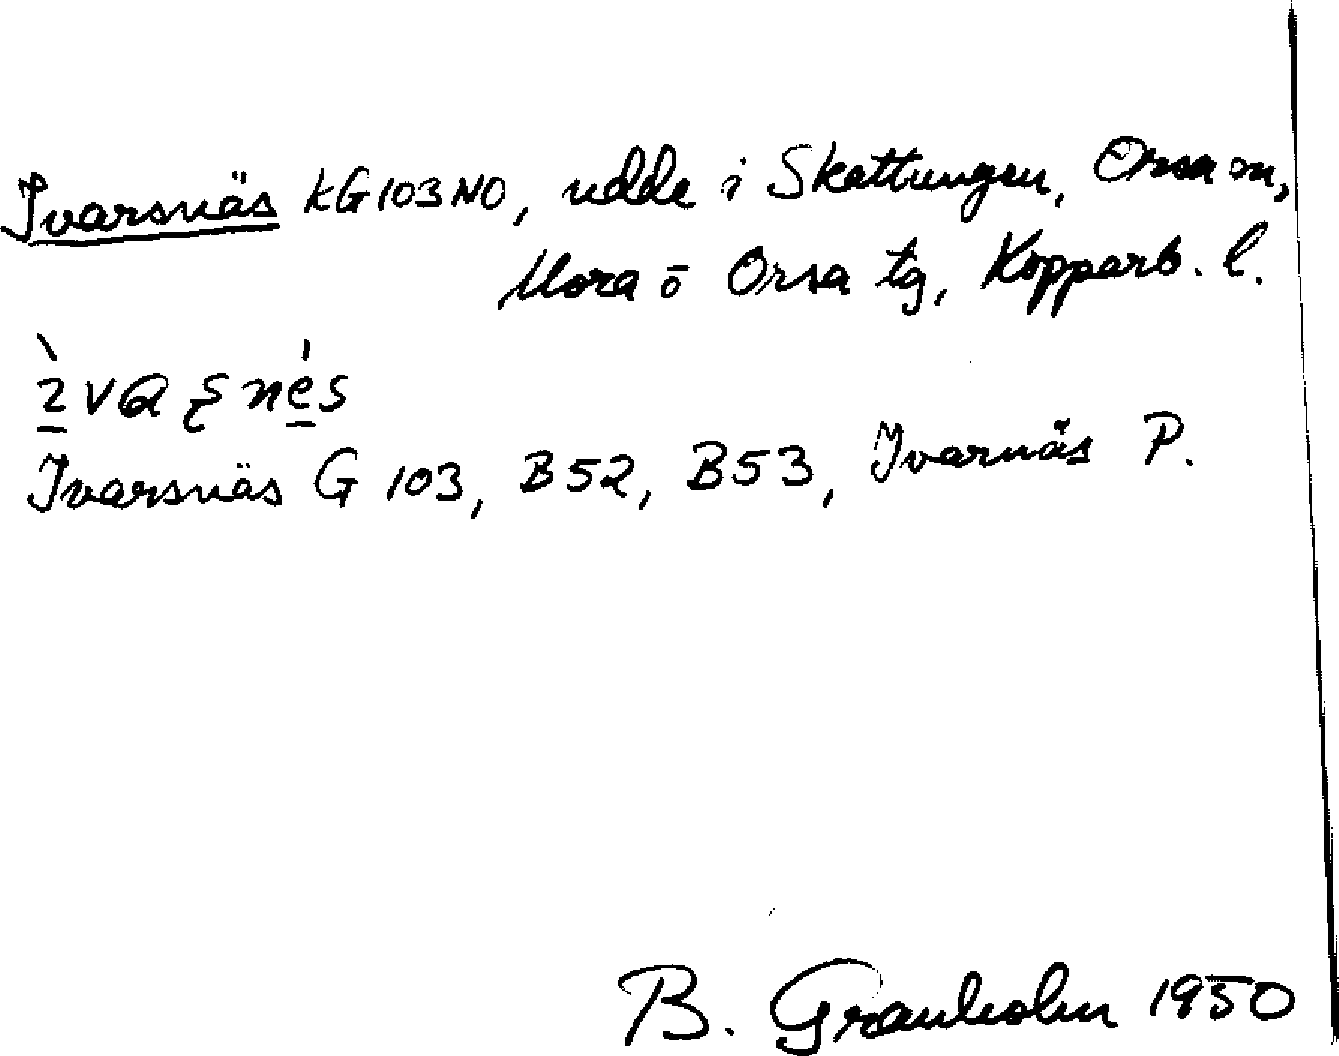 Ivarsnäs KG103NO, udde i Skattungen, Orsa sn,
Mora o Orsa tg, Kopparb. l.
Ivarsnäs G 103, B52, B53, Ivarnäs P.
B. Granholm 1950